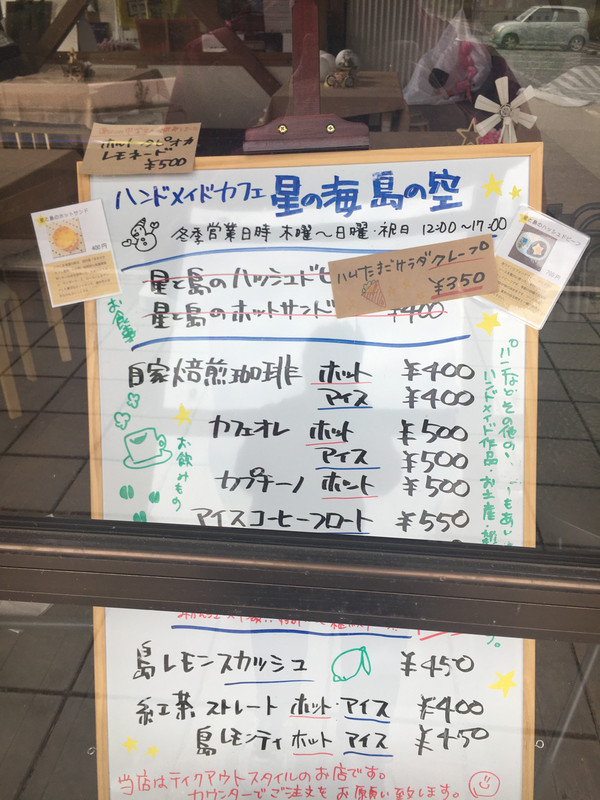 ホットタピオカ
レモネード
¥500
ハンドメイドカフェ 星の海 島の空
冬季営業日時 木曜〜日曜・祝日 12:00〜17:00
星と島のホットサンド
400円
星と島のハッシュド
星と島のホットサンド ¥400
ハムたまごサラダクレープ
¥350
お食事
自家焙煎珈琲 ホット ¥400
アイス ¥400
カフェオレ ホット ¥500
アイス ¥500
カプチーノ ホット ¥500
アイスコーヒーフロート ¥550
お飲みもの
ハンドメイド作品 お土産・
島レモンスカッシュ ¥450
紅茶 ストレート ホット・アイス ¥400
島レモンティ ホット アイス ¥450
当店はテイクアウトスタイルのお店です。
カウンターでご注文をお願い致します。